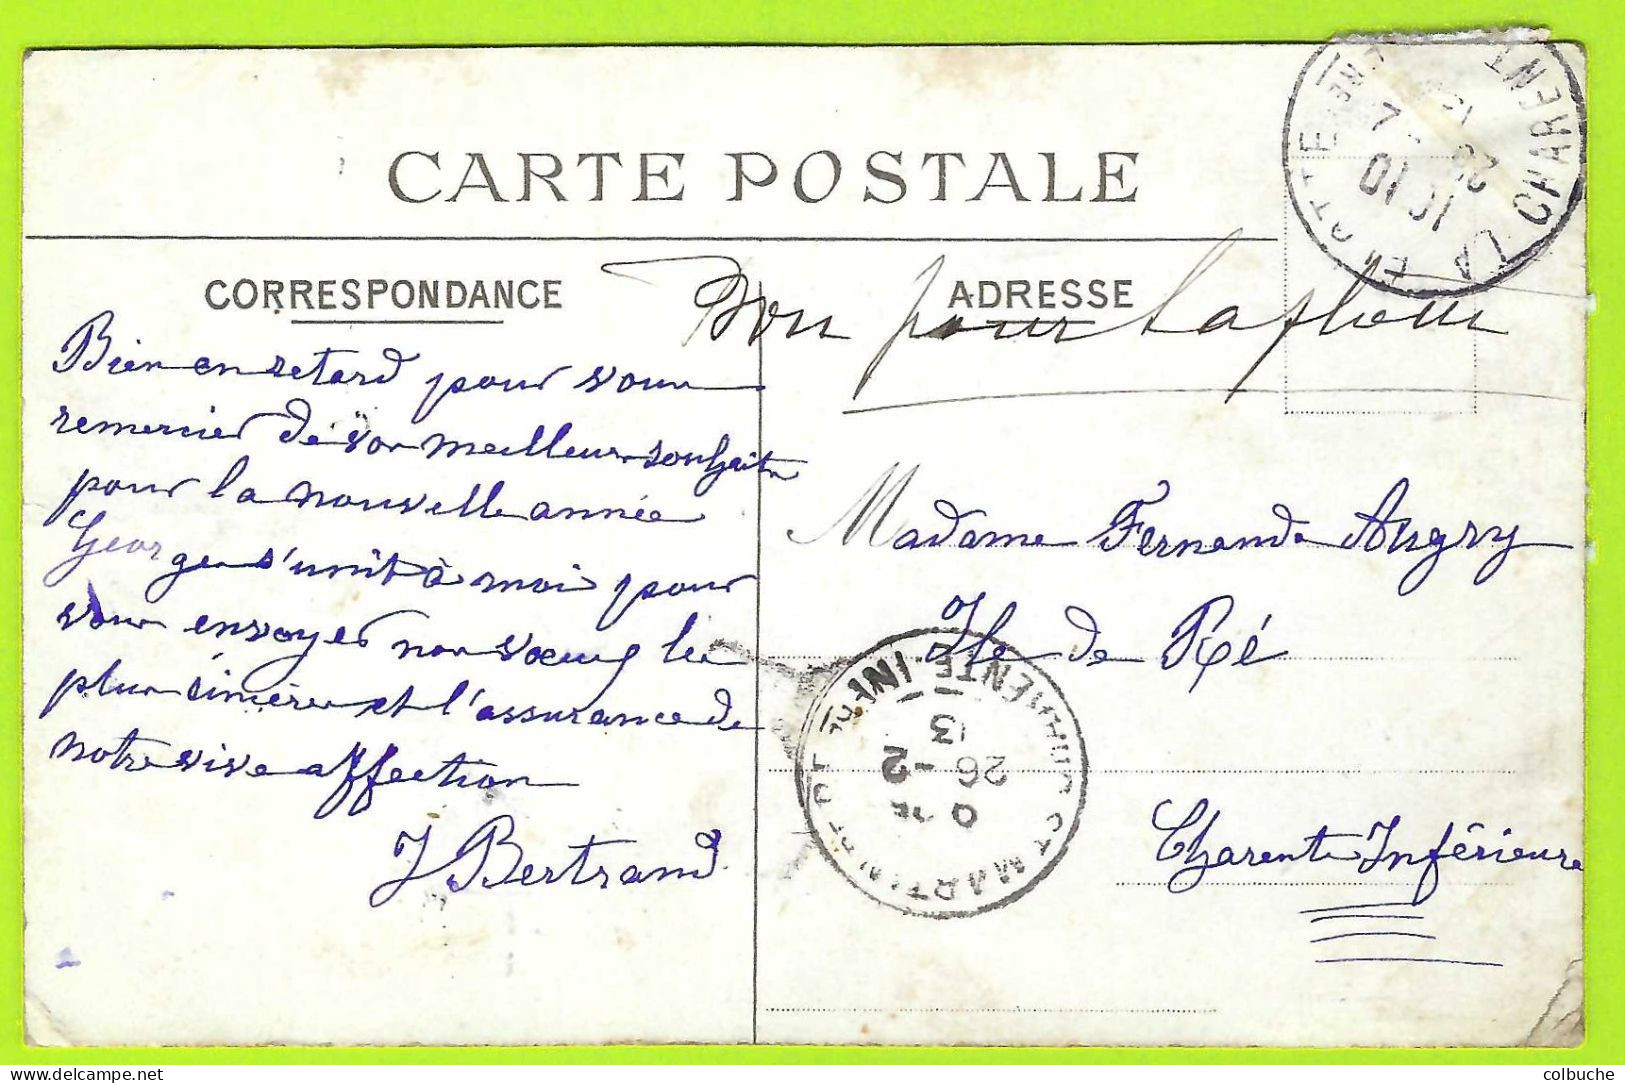 CARTE POSTALE
CORRESPONDANCE
ADRESSE
Bon pour Laflotte
Bien en retard pour vous
remercier de vos meilleurs souhaits
pour la nouvelle année
Georges s'unit à moi pour
vous envoyer nos vœux les
plus sincères et l'assurance de
notre vive affection
J Bertrand
Madame Fernande Augry
Ile de Ré
Charente Inférieure
LA FLOTTE
CHARENTE
10 10
ST MARTIN DE RÉ
CHARENTE INFRE
26 - 2
13
colbuche